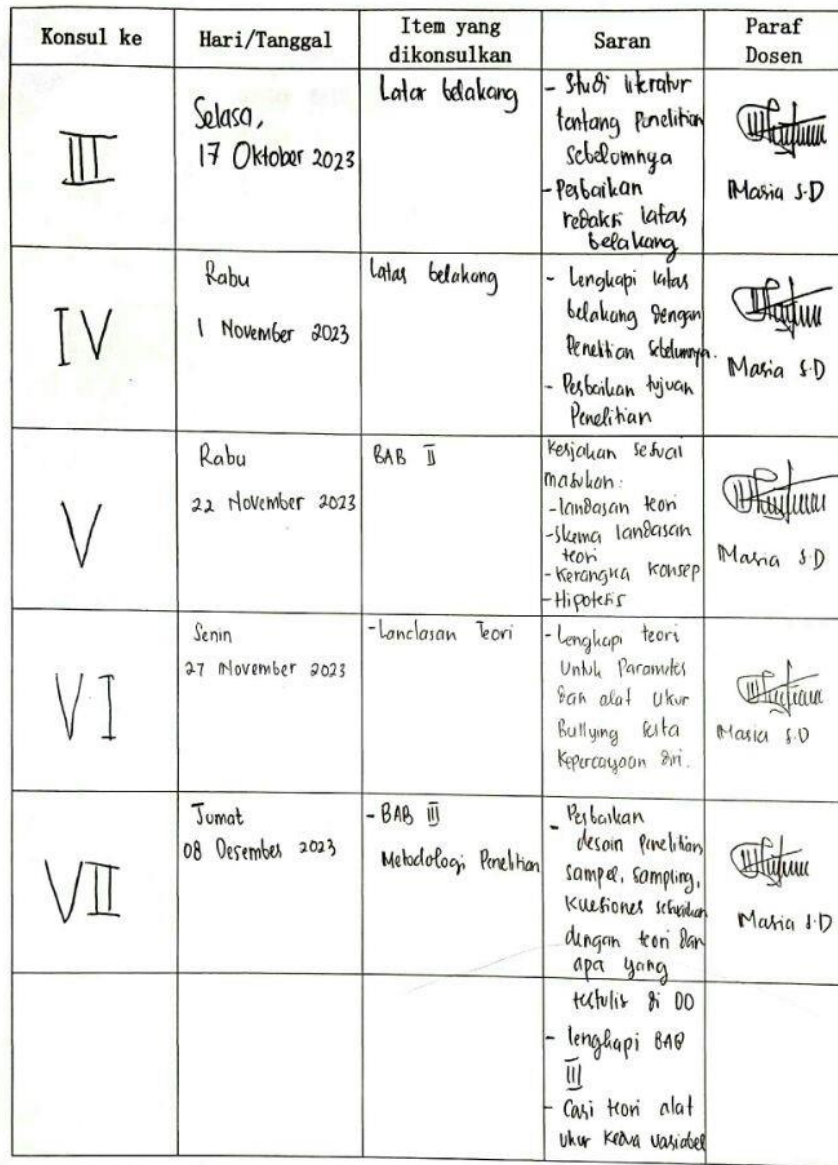 Konsul ke
Hari/Tanggal
Item yang
dikonsulkan
Saran
Paraf
Dosen
III
Selasa,
17 Oktober 2023
Latar belakang
- Studi literatur
tentang Penelitian
sebelomnya
- Perbaikan
redaksi latar
belakang
Maria S.D
IV
Rabu
1 November 2023
latar belakang
- Lengkapi latar
belakang dengan
Penelitian sebelumnya.
- Perbaikan tujuan
Penelitian
Maria S.D
V
Rabu
22 November 2023
BAB II
Kerjakan sesuai
masukan:
- landasan teori
- skema landasan
teori
- Kerangka konsep
- Hipotesis
Maria S.D
VI
Senin
27 November 2023
- Landasan Teori
- lengkapi teori
Untuk Parameter
dan alat ukur
Bullying serta
Kepercayaan diri.
Maria S.D
VII
Jumat
08 Desember 2023
- BAB III
Metodologi Penelitian
- Perbaikan
desain penelitian,
sampel, sampling,
kuesioner sesuaikan
dengan teori dan
apa yang
tertulis di DO
- lengkapi BAB
III
- Cari teori alat
ukur kedua variabel
Maria S.D